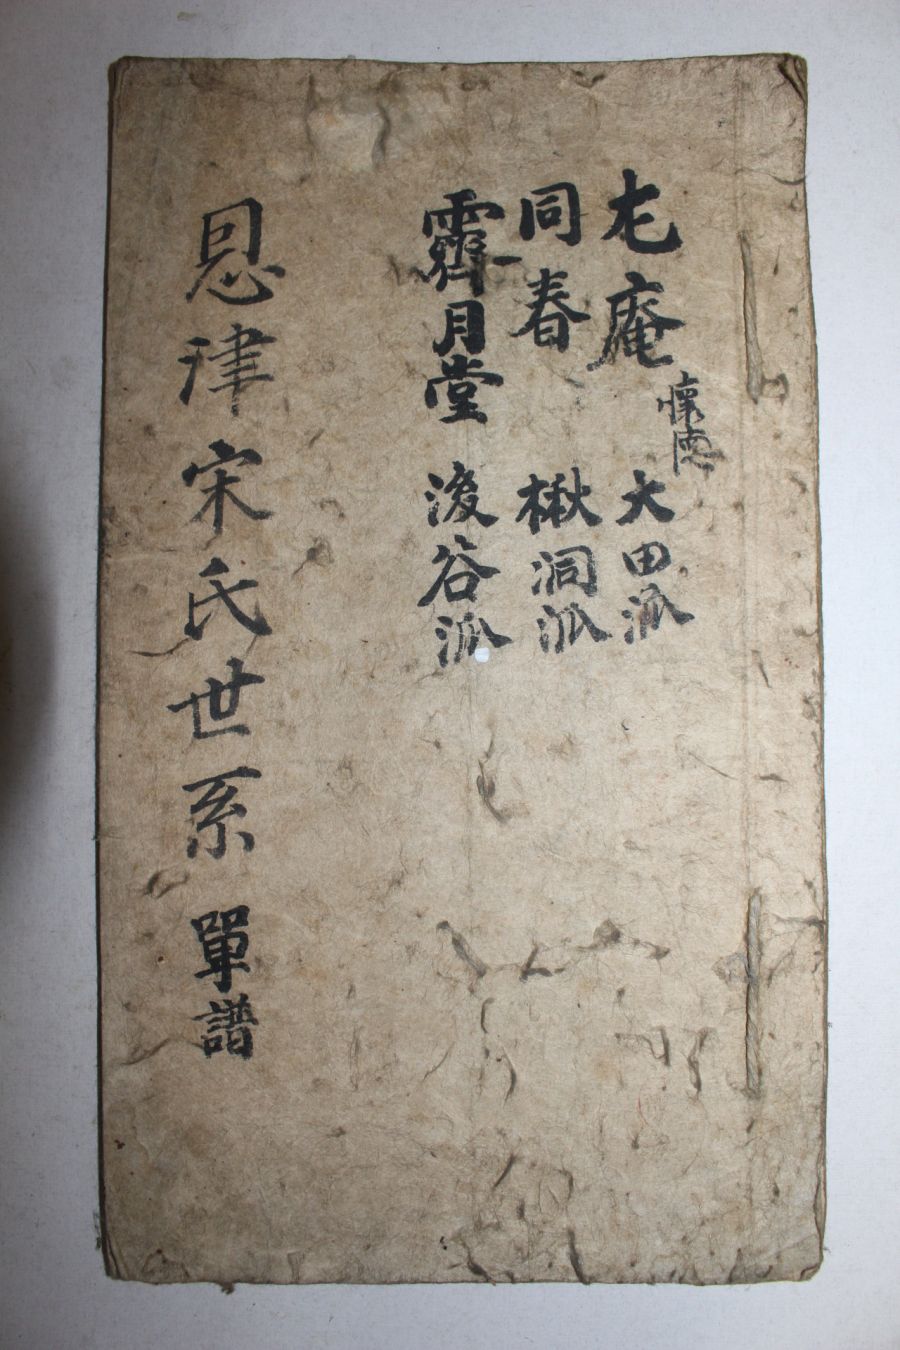 尤庵 懷德 大田派
同春 楸洞派
霽月堂 浚谷派
恩津宋氏世系 單譜